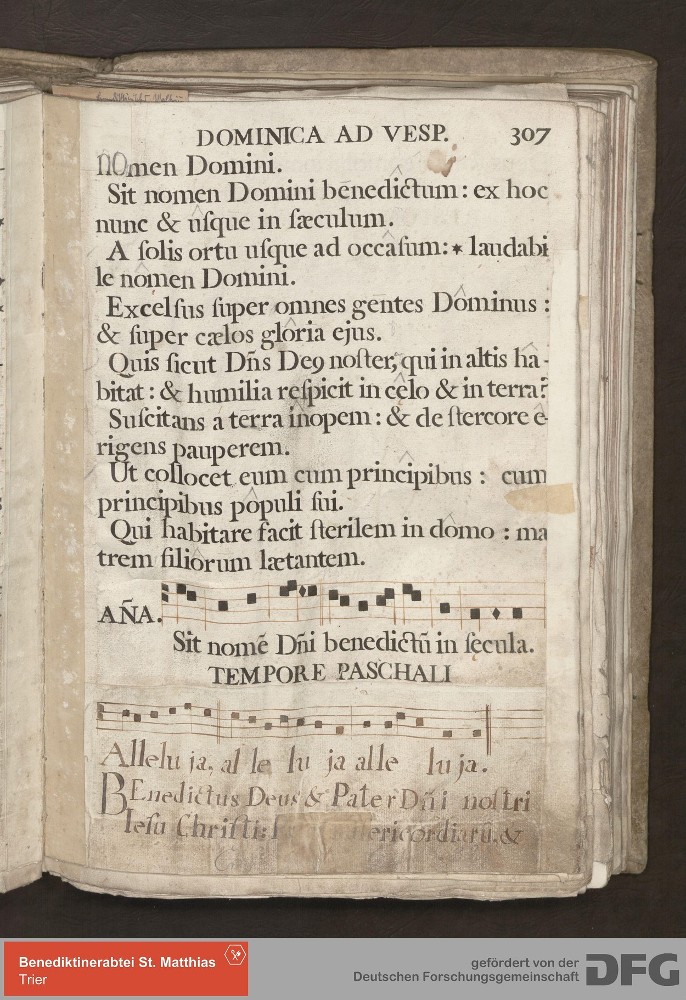 DOMINICA AD VESP. 307
nOmen Domini.
Sit nomen Domini bēnedîctum : ex hoc
nunc & ûſque in ſæculum.
A ſolis ortu uſque ad occâſum: * laudabi
le nômen Domini.
Excelſus ſuper omnes gēntes Dôminus :
& ſuper cælos glôria ejus.
Quis ſicut Dñs Deꝯ noſter, qui in altis hâ-
bitat : & humilia reſpicit in cêlo & in terra?
Suſcitans á terra înopem : & de ſtercore ê-
rigens pauperem.
Ut collocet eum cum princîpibus : cum
principibus pôpuli ſui.
Qui habitare facit ſterilem in dômo : ma
trem filiôrum lætantem.
AÑA.
Sit nomē Dñi benedictū in ſecula.
TEMPORE PASCHALI
Allelu ja, al le lu ja alle lu ja.
BEnedictus Deus & Pater Dñi noſtri
Ieſu Chriſti: &
Benediktinerabtei St. Matthias
Trier
gefördert von der
Deutschen Forschungsgemeinschaft
DFG